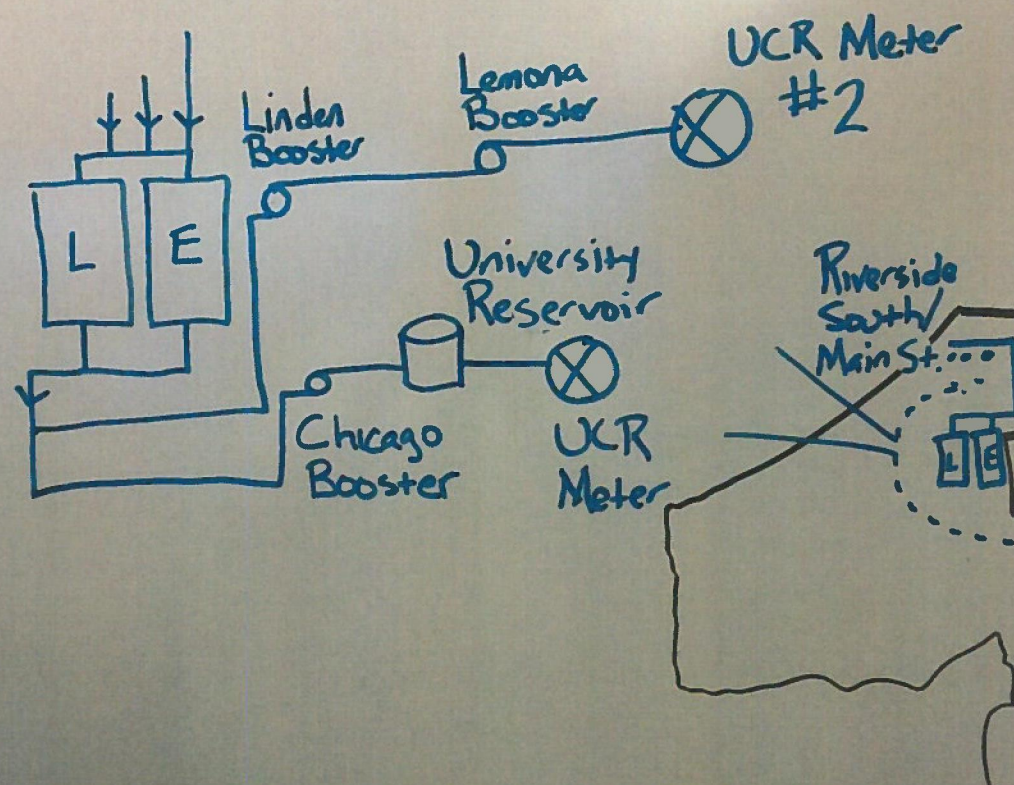 UCR Meter
#2
Lemona
Booster
Linden
Booster
L
E
University
Reservoir
Riverside
South/
Main St.
Chicago
Booster
UCR
Meter
L
E